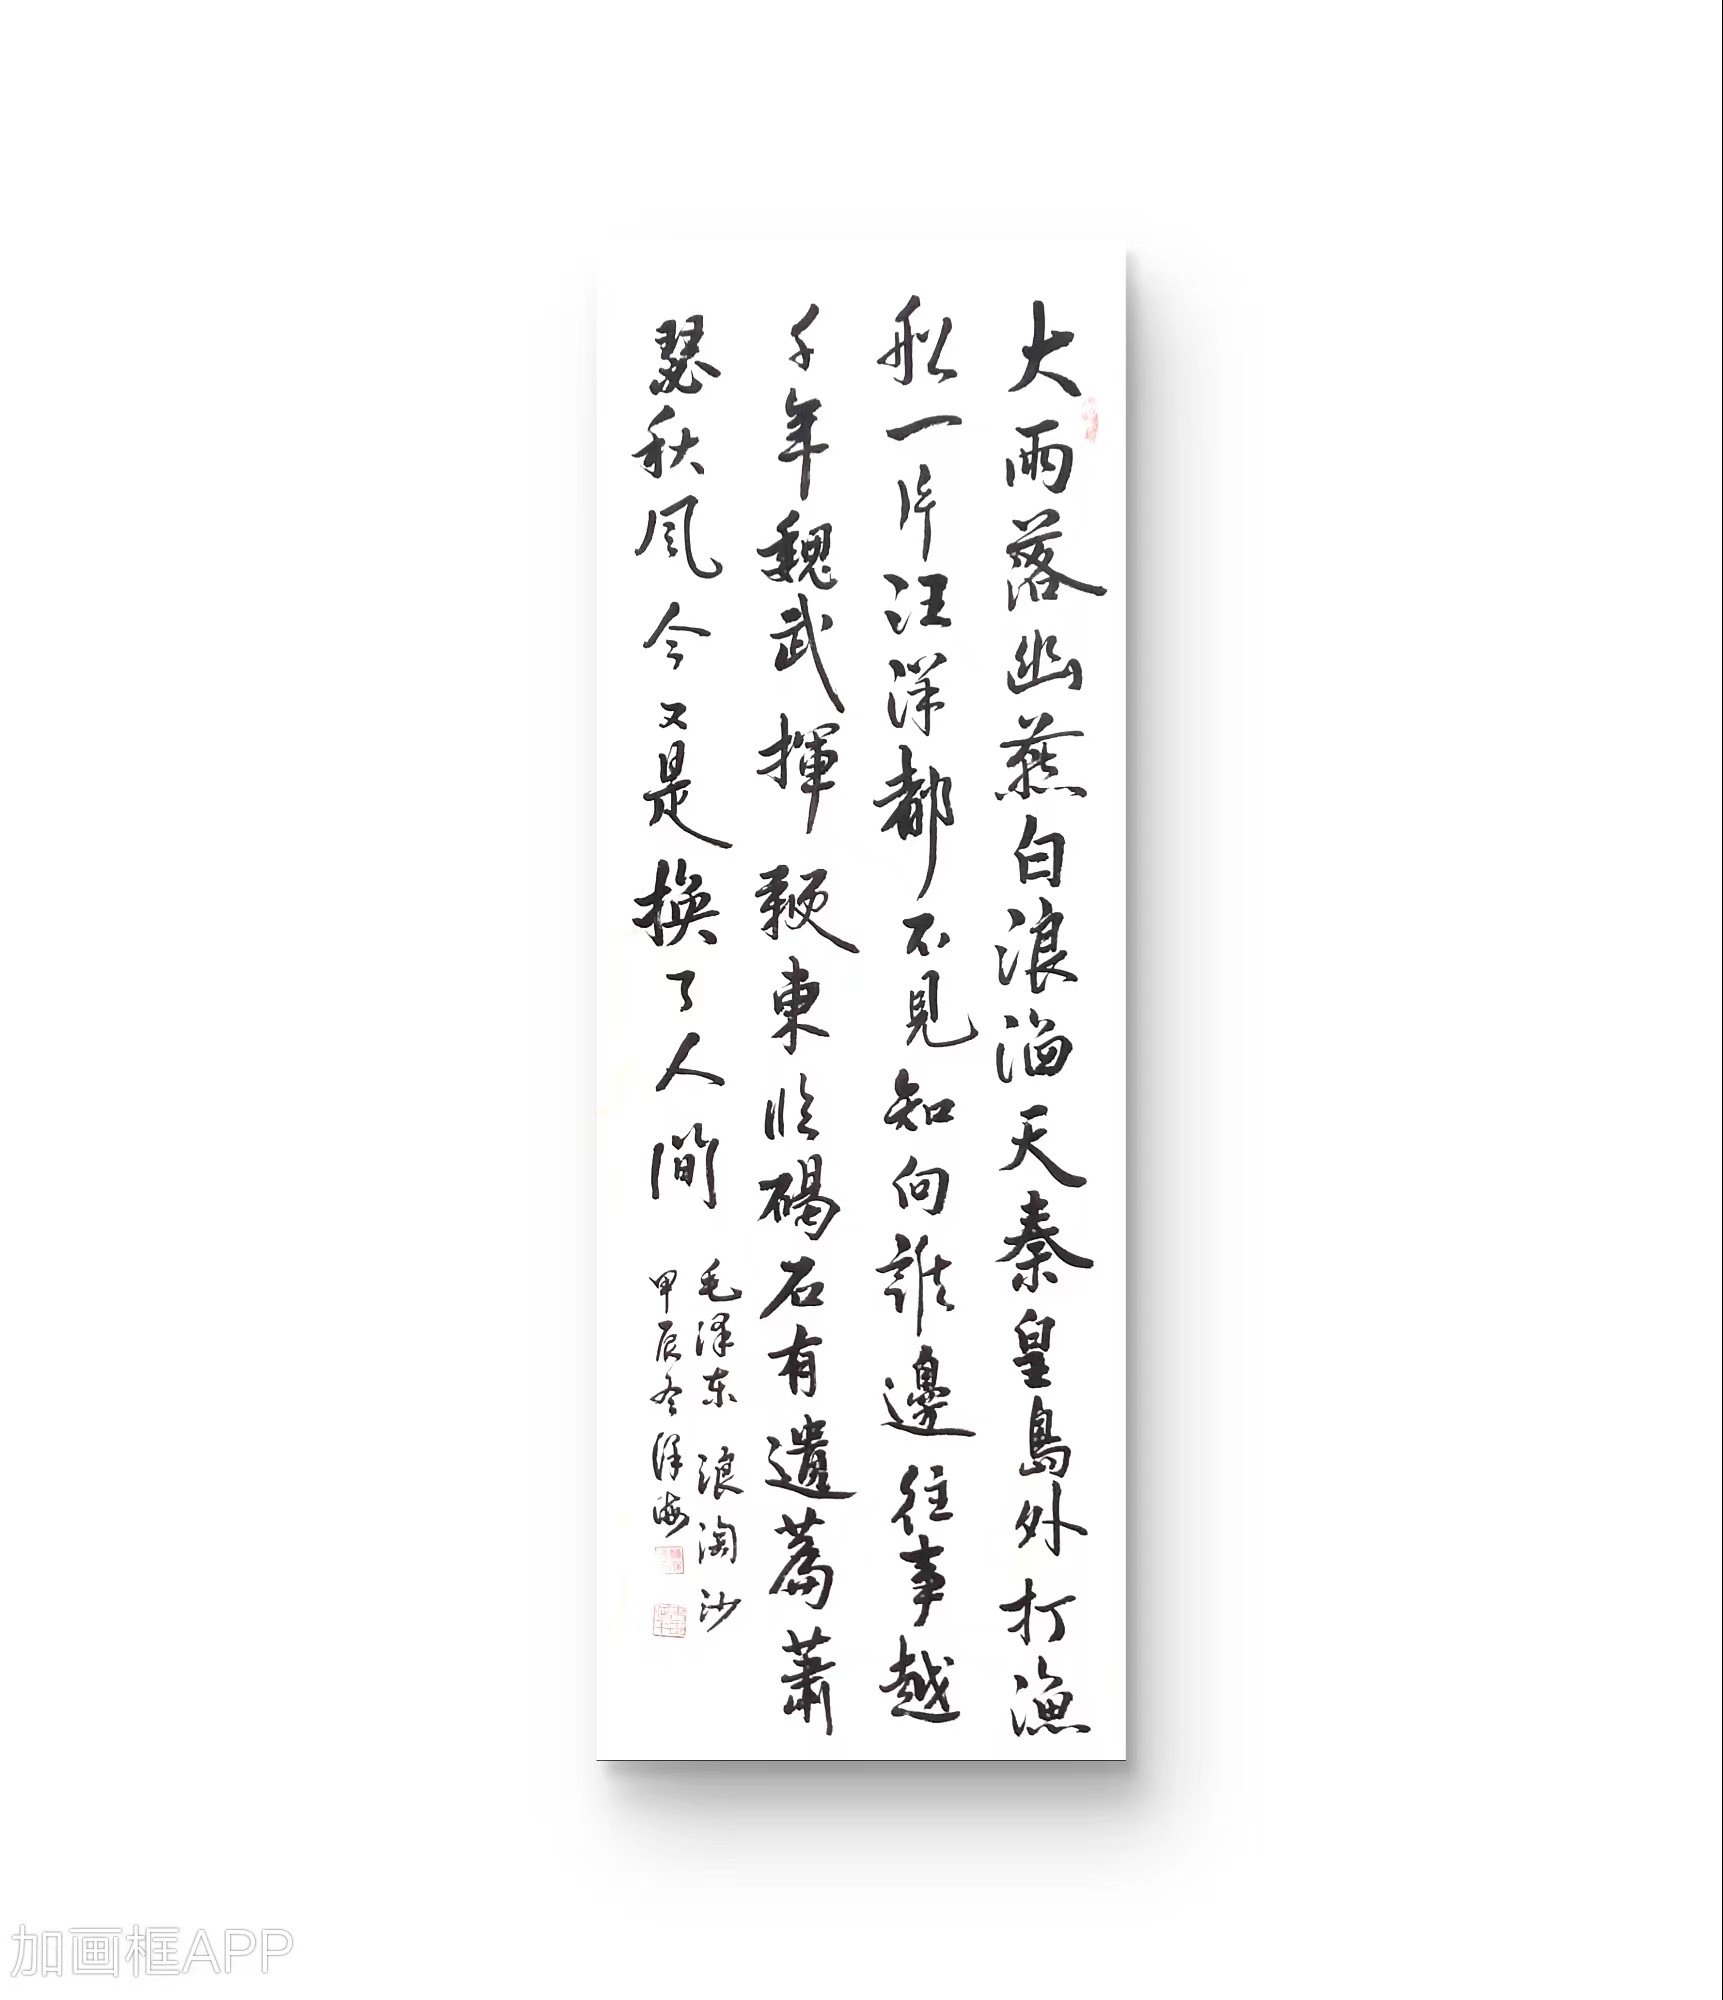 大雨落幽燕白浪滔天秦皇島外打漁
船一片汪洋都不見知向誰邊往事越
千年魏武揮鞭東临碣石有遺篇蕭
瑟秋风今又是換了人間
毛泽东 浪淘沙
甲辰冬泽海
加画框APP